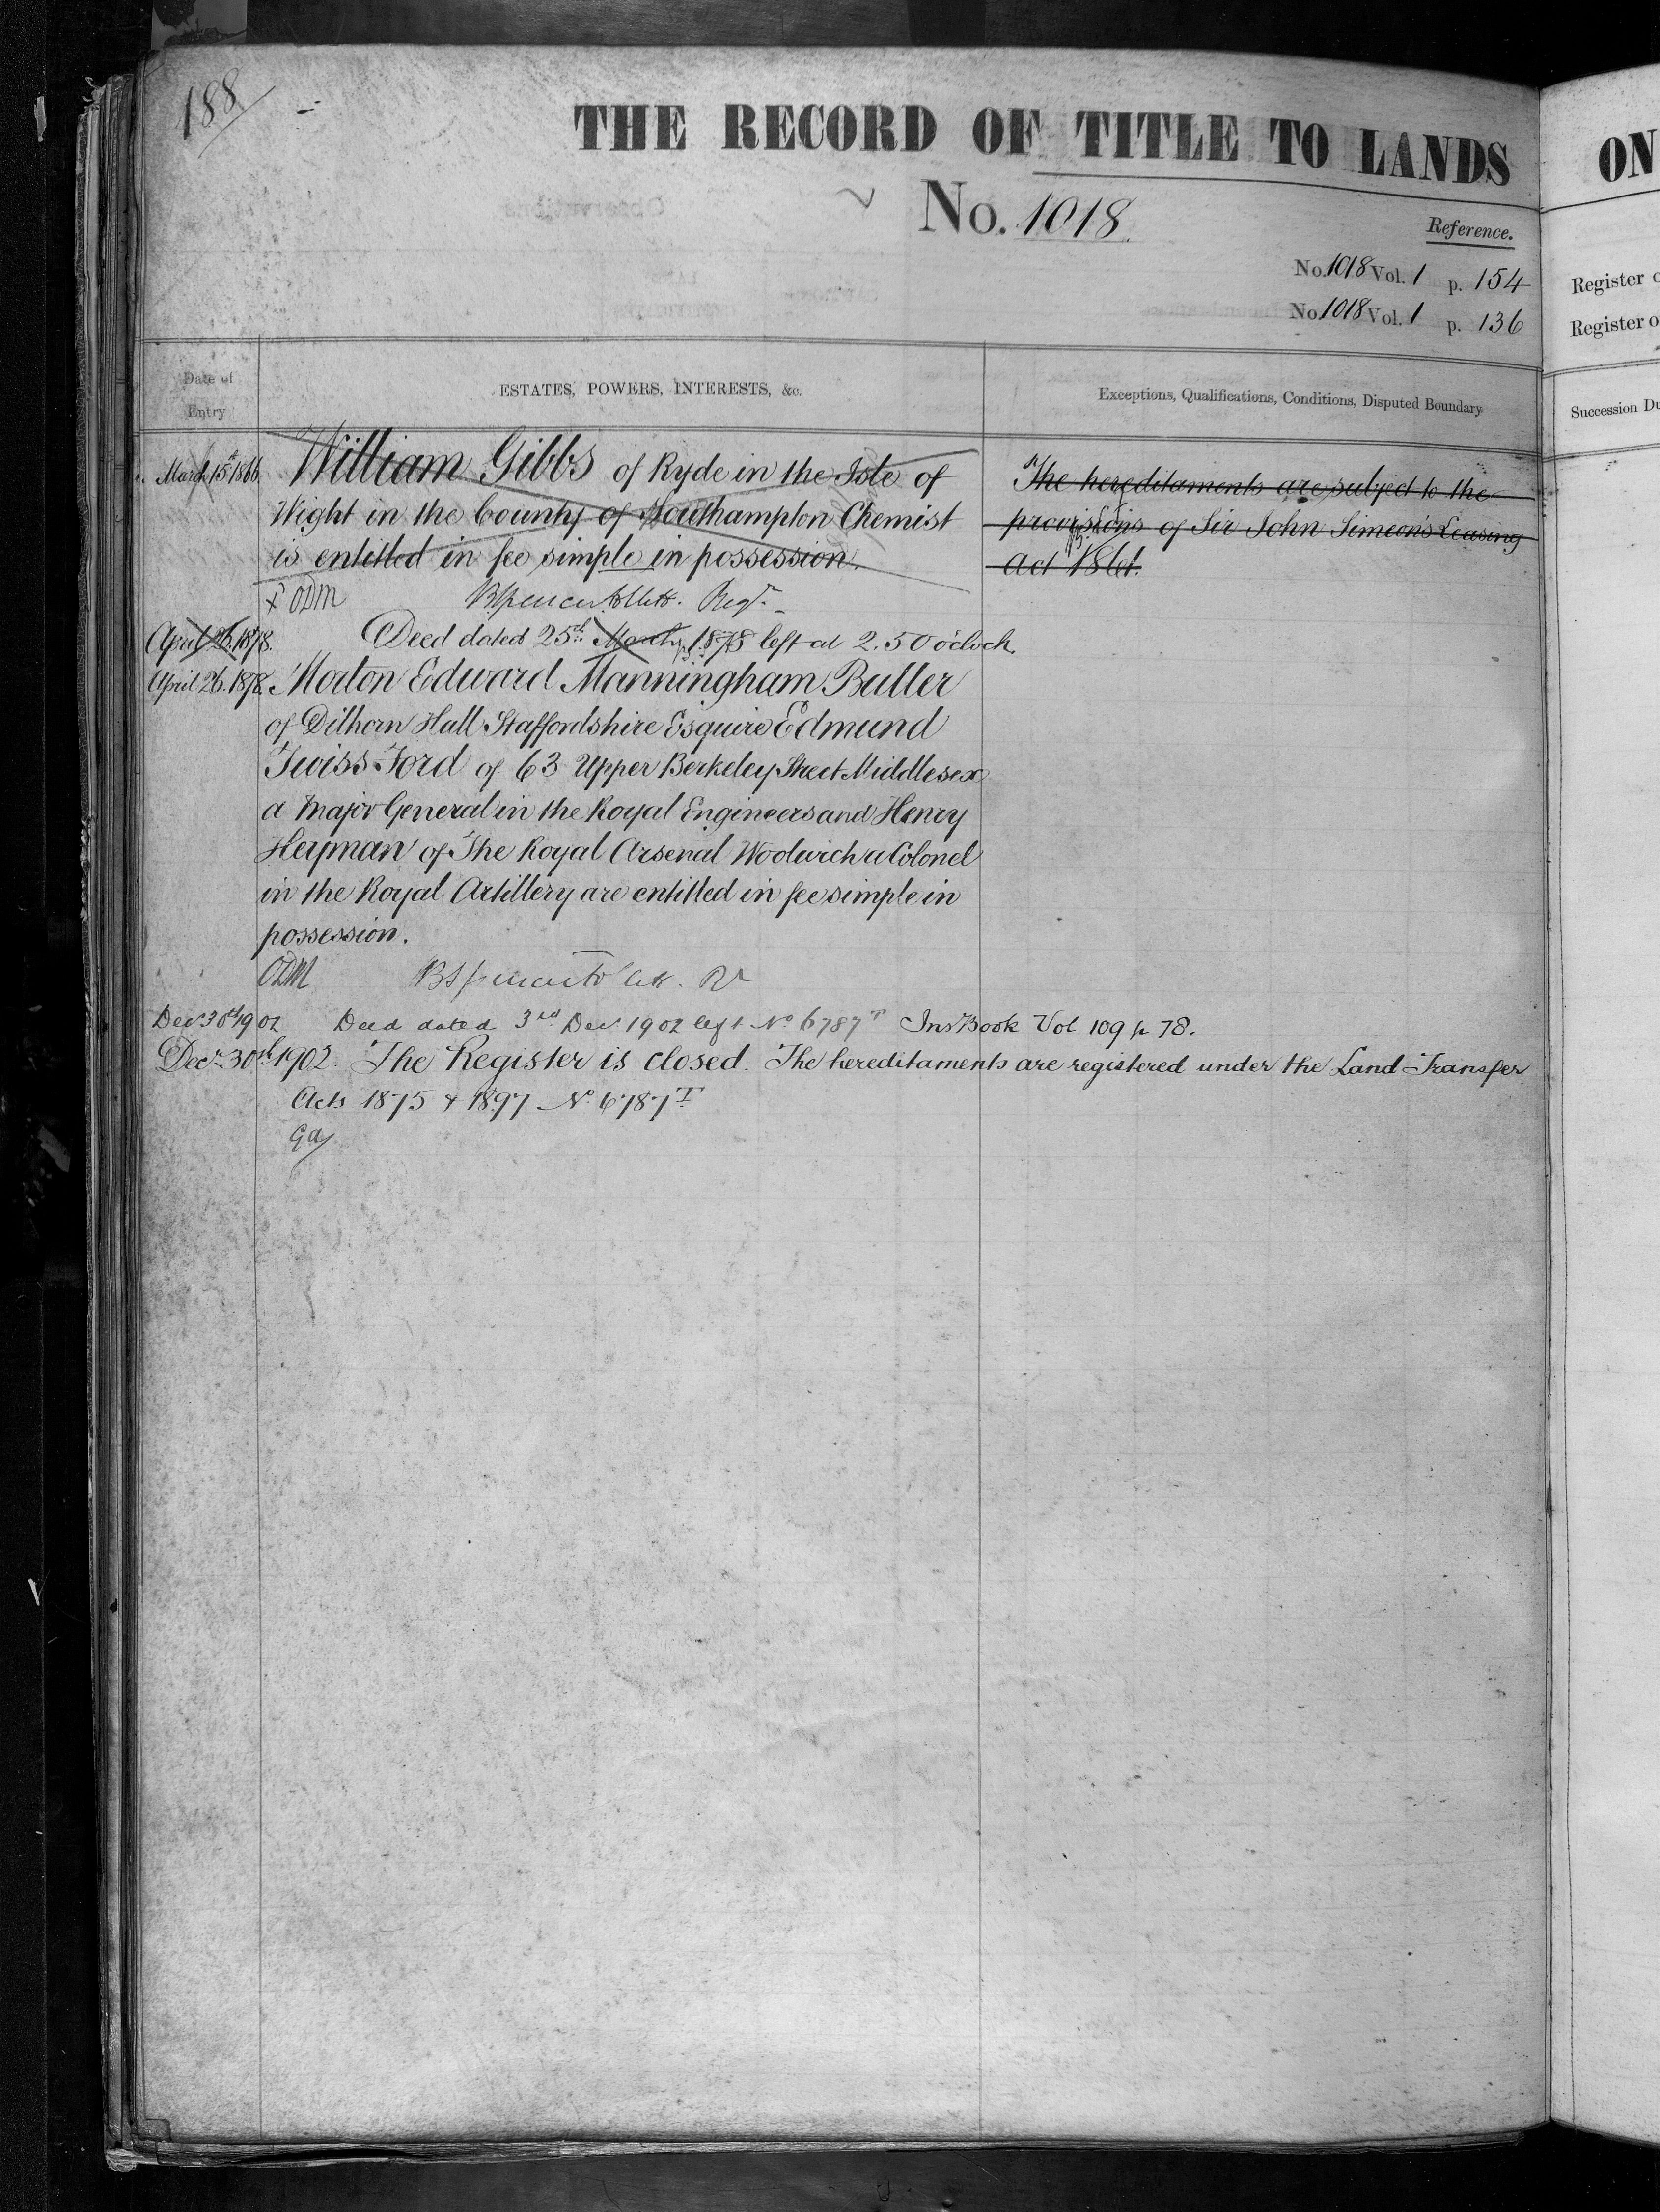 188
THE RECORD OF TITLE TO LANDS
No. 1018.
Reference.
No. 1018 Vol. 1 p. 154
No. 1018 Vol. 1 p. 136
Date of Entry
ESTATES, POWERS, INTERESTS, &c.
Exceptions, Qualifications, Conditions, Disputed Boundary
March 15th 1866 William Gibbs of Ryde in the Isle of
Wight in the County of Southampton Chemist
is entitled in fee simple in possession.
The hereditaments are subject to the
provisions of Sir John Simeon's Leasing
Act 1861.
ODM Regr.
April 26. 1878. Deed dated 25th March 1878 left at 2.50 o'clock.
April 26. 1878. Morton Edward Manningham Buller
of Dilhorn Hall Staffordshire Esquire Edmund
Twiss Ford of 63 Upper Berkeley Street Middlesex
a Major General in the Royal Engineers and Henry
Heyman of The Royal Arsenal Woolwich a Colonel
in the Royal Artillery are entitled in fee simple in
possession.
ODM Rr
Decr 30th 1902 Deed dated 3rd Decr 1902 left No. 6787T Ins Book Vol 109 p 78.
Decr. 30th 1902. The Register is closed. The hereditaments are registered under the Land Transfer
Acts 1875 & 1897 No. 6787T
ON
Register o
Register o
Succession Du